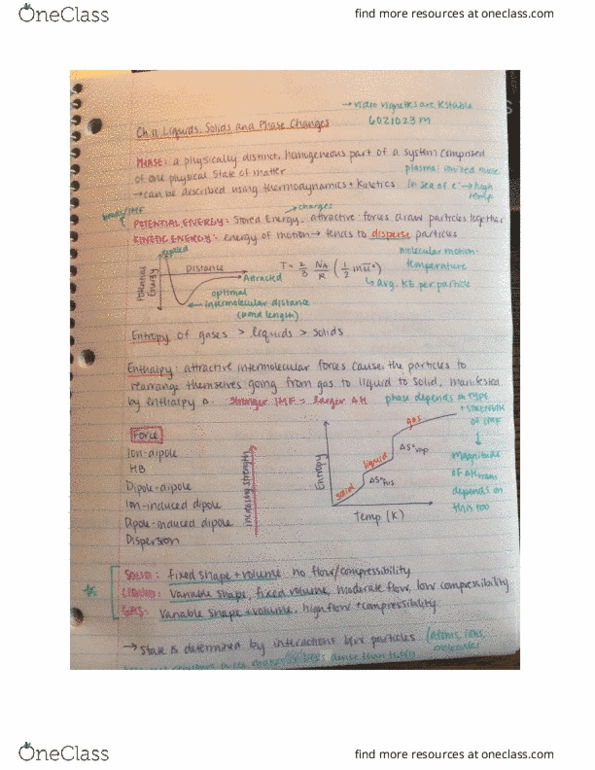 OneClass
find more resources at oneclass.com
→ video vignettes are testable
Ch.11 Liquids, Solids and Phase Changes
6021023m
PHASE: a physically distinct, homogeneous part of a system comprised
of one physical state of matter
plasma: ionized nuclei
→ can be described using thermodynamics + kinetics
in sea of e⁻ → high temp
bonds/IMF
charges
POTENTIAL ENERGY: Stored Energy, attractive forces draw particles together
KINETIC ENERGY: energy of motion → tends to disperse particles
repelled
Potential Energy
Distance
Attracted
optimal
intermolecular distance
(bond length)
molecular motion:
temperature
↳ avg. KE per particle
Entropy of gases > liquids > solids
Enthalpy: attractive intermolecular forces cause the particles to
rearrange themselves going from gas to liquid to solid, manifested
by enthalpy Δ. Stronger IMF = larger ΔH
phase depends on TYPE
+ STRENGTH
of IMF
↓
magnitude
of ΔHtrans
depends on
this too
Force
Ion-dipole
HB
Dipole-dipole
Ion-induced dipole
Dipole-induced dipole
Dispersion
increasing strength
Entropy
solid
liquid
gas
ΔS°fus
ΔS°vap
Temp (K)
SOLID: fixed shape + volume no flow/compressibility
LIQUID: Variable shape, fixed volume, moderate flow, low compressibility
GAS: Variable shape + volume, high flow + compressibility
→ State is determined by interactions b/w particles (atoms, ions,
molecules
OneClass
find more resources at oneclass.com